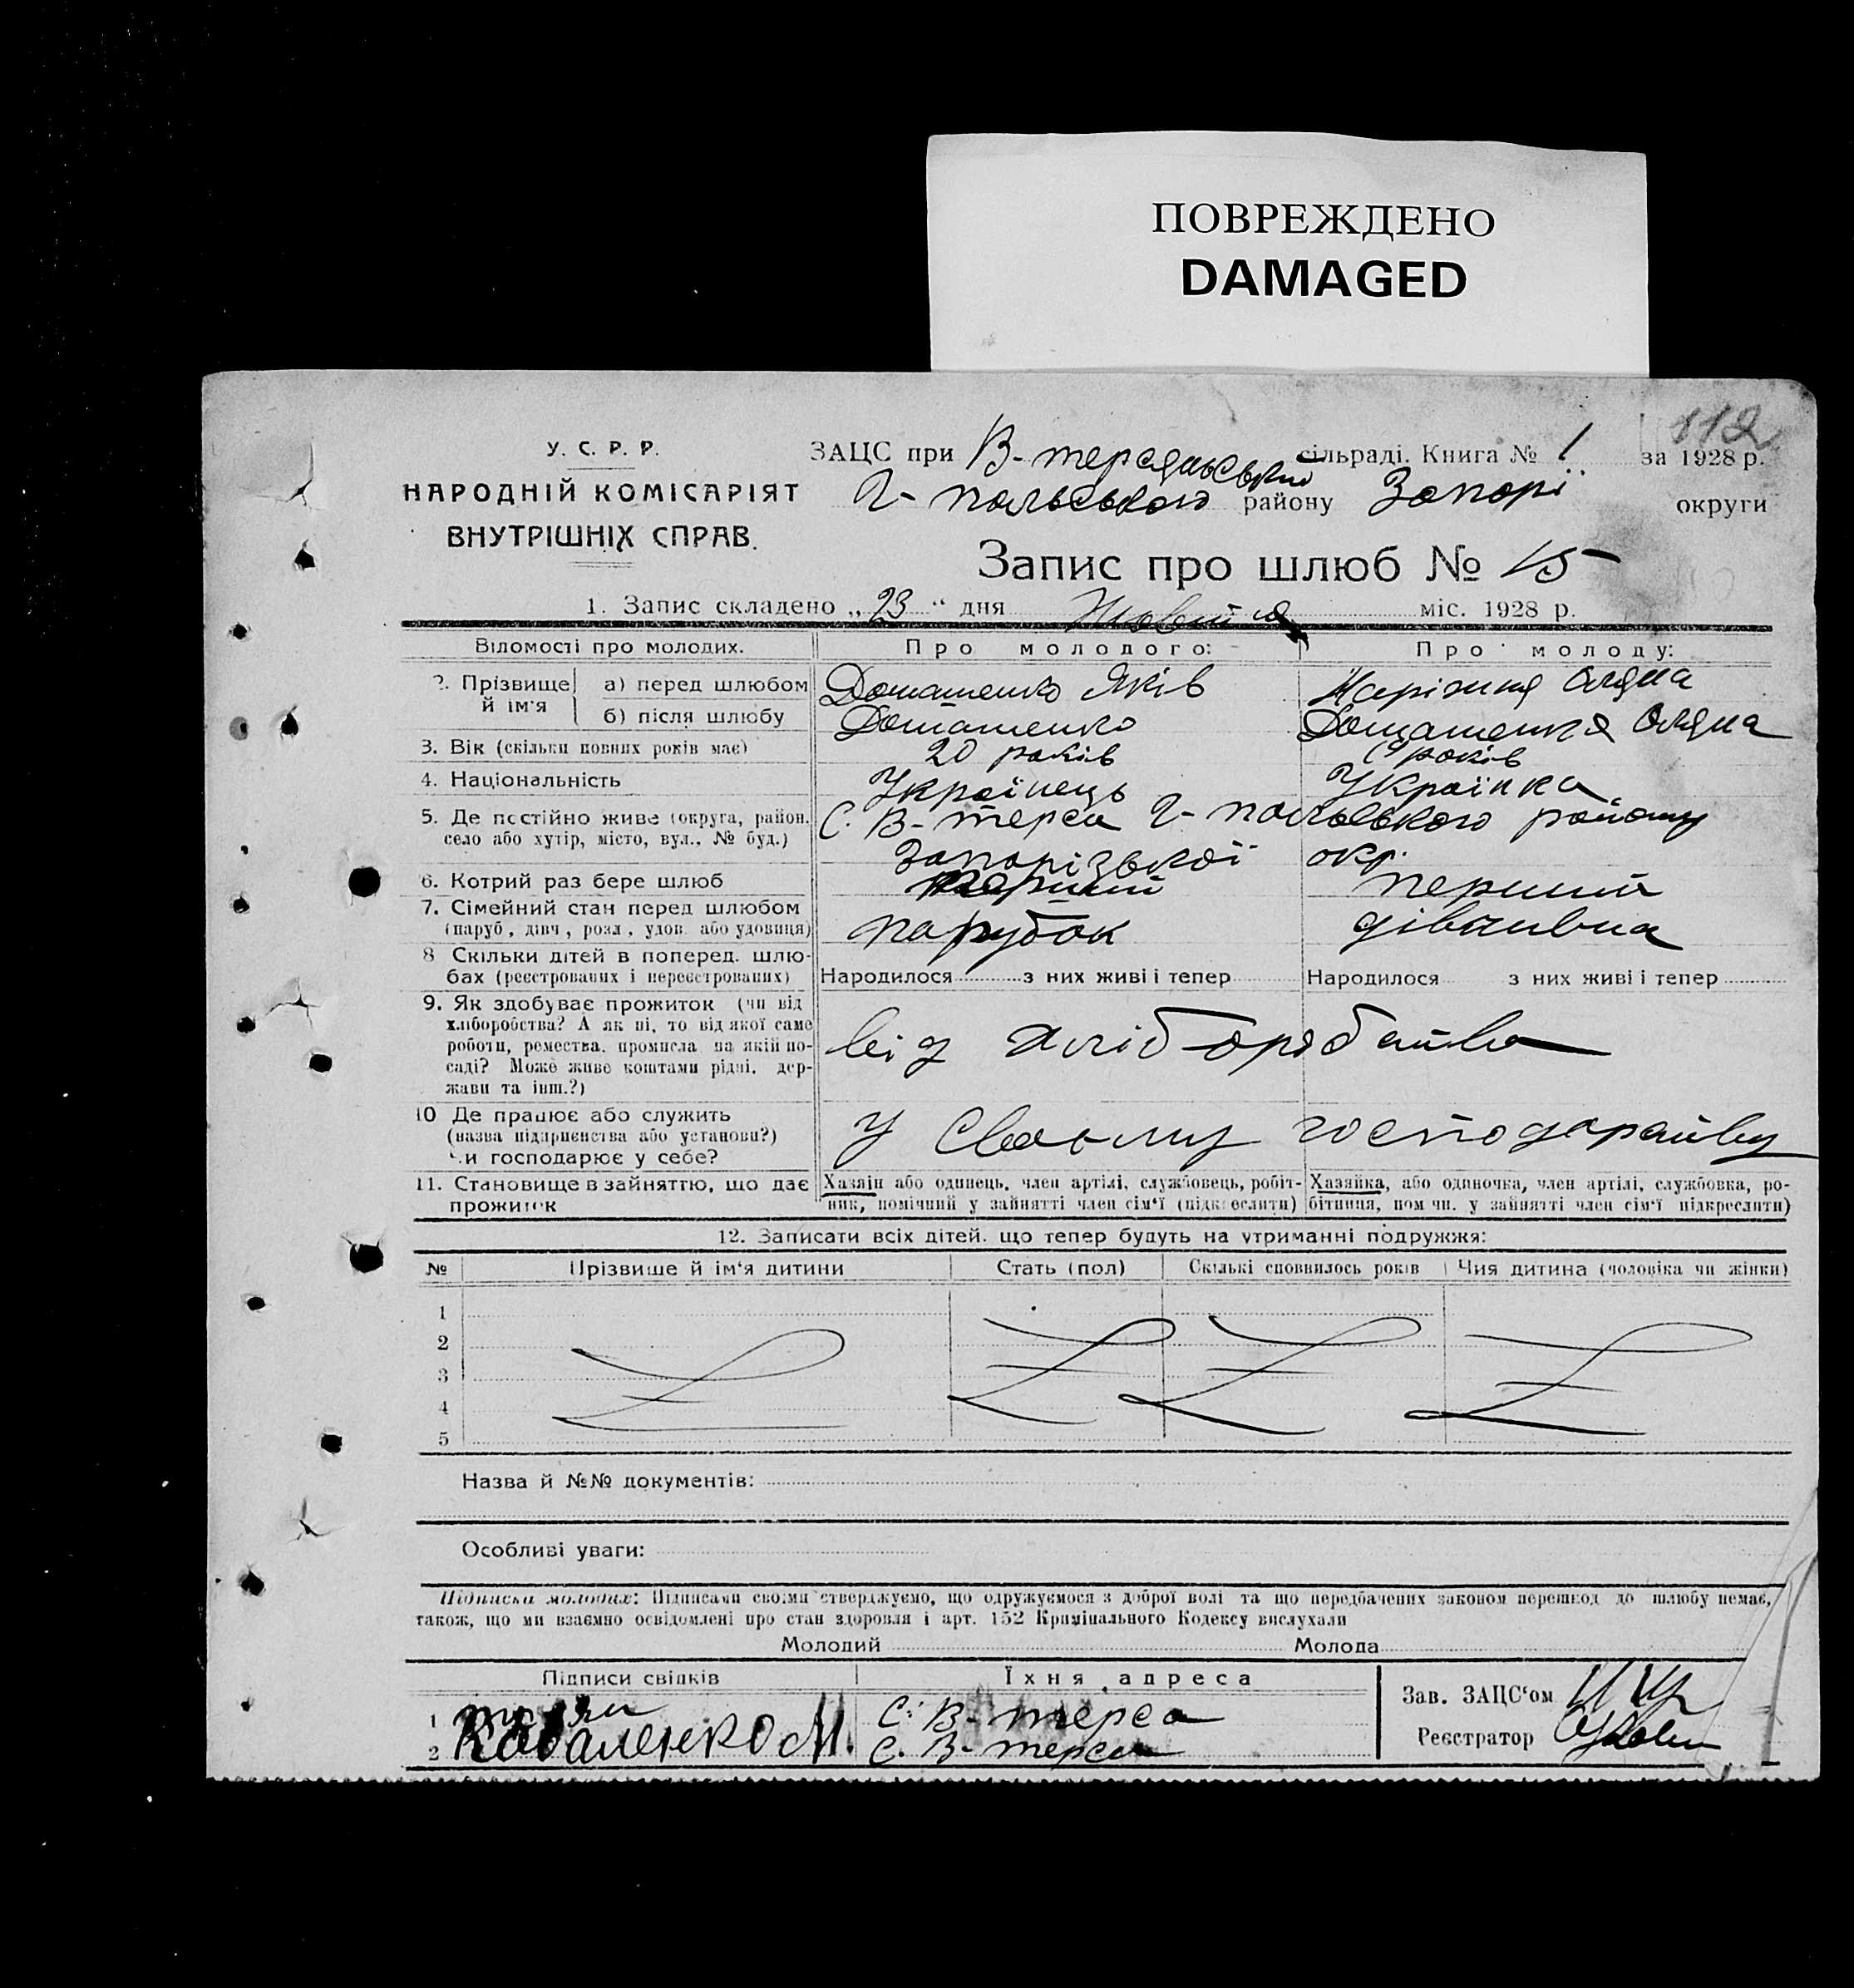 ПОВРЕЖДЕНО
DAMAGED
112
У. С. Р. Р.
НАРОДНІЙ КОМІСАРІЯТ
ВНУТРІШНІХ СПРАВ.
ЗАЦС при В-терсянський сільраді. Книга № 1 за 1928 р.
Г-польського району Запорі округи
Запис про шлюб № 15
1. Запис складено „23“ дня Жовтня міс. 1928 р.
Відомості про молодих. Про молодого: Про молоду:
2. Прізвище й ім'я
а) перед шлюбом Домашенко Яків Олена
б) після шлюбу Домашенко Домашенко Олена
3. Вік (скільки повних років має) 20 років 19 років
4. Національність Українець Українка
5. Де постійно живе (округа, район, село або хутір, місто, вул., № буд.) С. В-терса Г-польського району
Запорізської окр.
6. Котрий раз бере шлюб перший перший
7. Сімейний стан перед шлюбом парубок дівчина
(паруб, дівч, розл, удов. або удовиця)
8 Скільки дітей в поперед. шлюбах (реєстрованих і нереєстрованих) Народилося з них живі і тепер Народилося з них живі і тепер
9. Як здобуває прожиток (чи від хліборобства? А як ні, то від якої саме роботи, ремества, промисла, на якій посаді? Може живе коштами рідні, держави та інш.?) від хліборобства
10 Де працює або служить (назва підприєнства або установи?) Чи господарює у себе? У своєму господарству
11. Становище в зайняттю, що дає прожиток Хазяїн або одинець, член артілі, службовець, робітник, помічний у зайнятті член сім'ї (підкреслити) Хазяйка, або одиночка, член артілі, службовка, робітниця, пом чн. у зайнятті член сім'ї підкреслити)
12. Записати всіх дітей, що тепер будуть на утриманні подружжя:
№ Прізвище й ім'я дитини Стать (пол) Скількі сповнилось років Чия дитина (чоловіка чи жінки)
1
2
3
4
5
Назва й №№ документів:
Особливі уваги:
Підписка молодих: Підписами своїми стверджуємо, що одружуємося з доброї волі та що передбачених законом перешкод до шлюбу немає,
також, що ми взаємно освідомлені про стан здоровля і арт. 152 Кримінального Кодексу вислухали
Молодий Молода
Підписи свідків Їхня адреса Зав. ЗАЦС'ом
1 С. В-терса
2 Коваленко М. С. В-терса Реєстратор